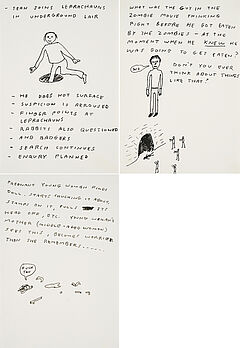 - SEAN JOINS LEPRECHAUNS
IN UNDERGROUND LAIR
- HE DOES NOT SURFACE
- SUSPICION IS AROUSED
- FINGER POINTS AT
LEPRECHAUNS
- RABBITS ALSO QUESTIONED
- AND BADGERS
- SEARCH CONTINUES
- ENQURY PLANNED
WHAT WAS THE GUY IN THE
ZOMBIE MOVIE THINKING
RIGHT BEFORE HE GOT EATEN
BY THE ZOMBIES - AT THE
MOMENT WHEN HE KNEW HE
WAS GOING TO GET EATEN?
DON'T YOU EVER
THINK ABOUT THINGS
LIKE THAT?
PREGNANT YOUNG WOMAN FINDS
DOLL. STARTS THINKING IT ABOUT,
STAMPS ON IT, PULLS ITS
HEAD OFF, ETC. YOUNG WOMAN'S
MOTHER (MIDDLE-AGED WOMAN)
SEES THIS, BECOMES WORRIED
THEN SHE REMEMBERS......